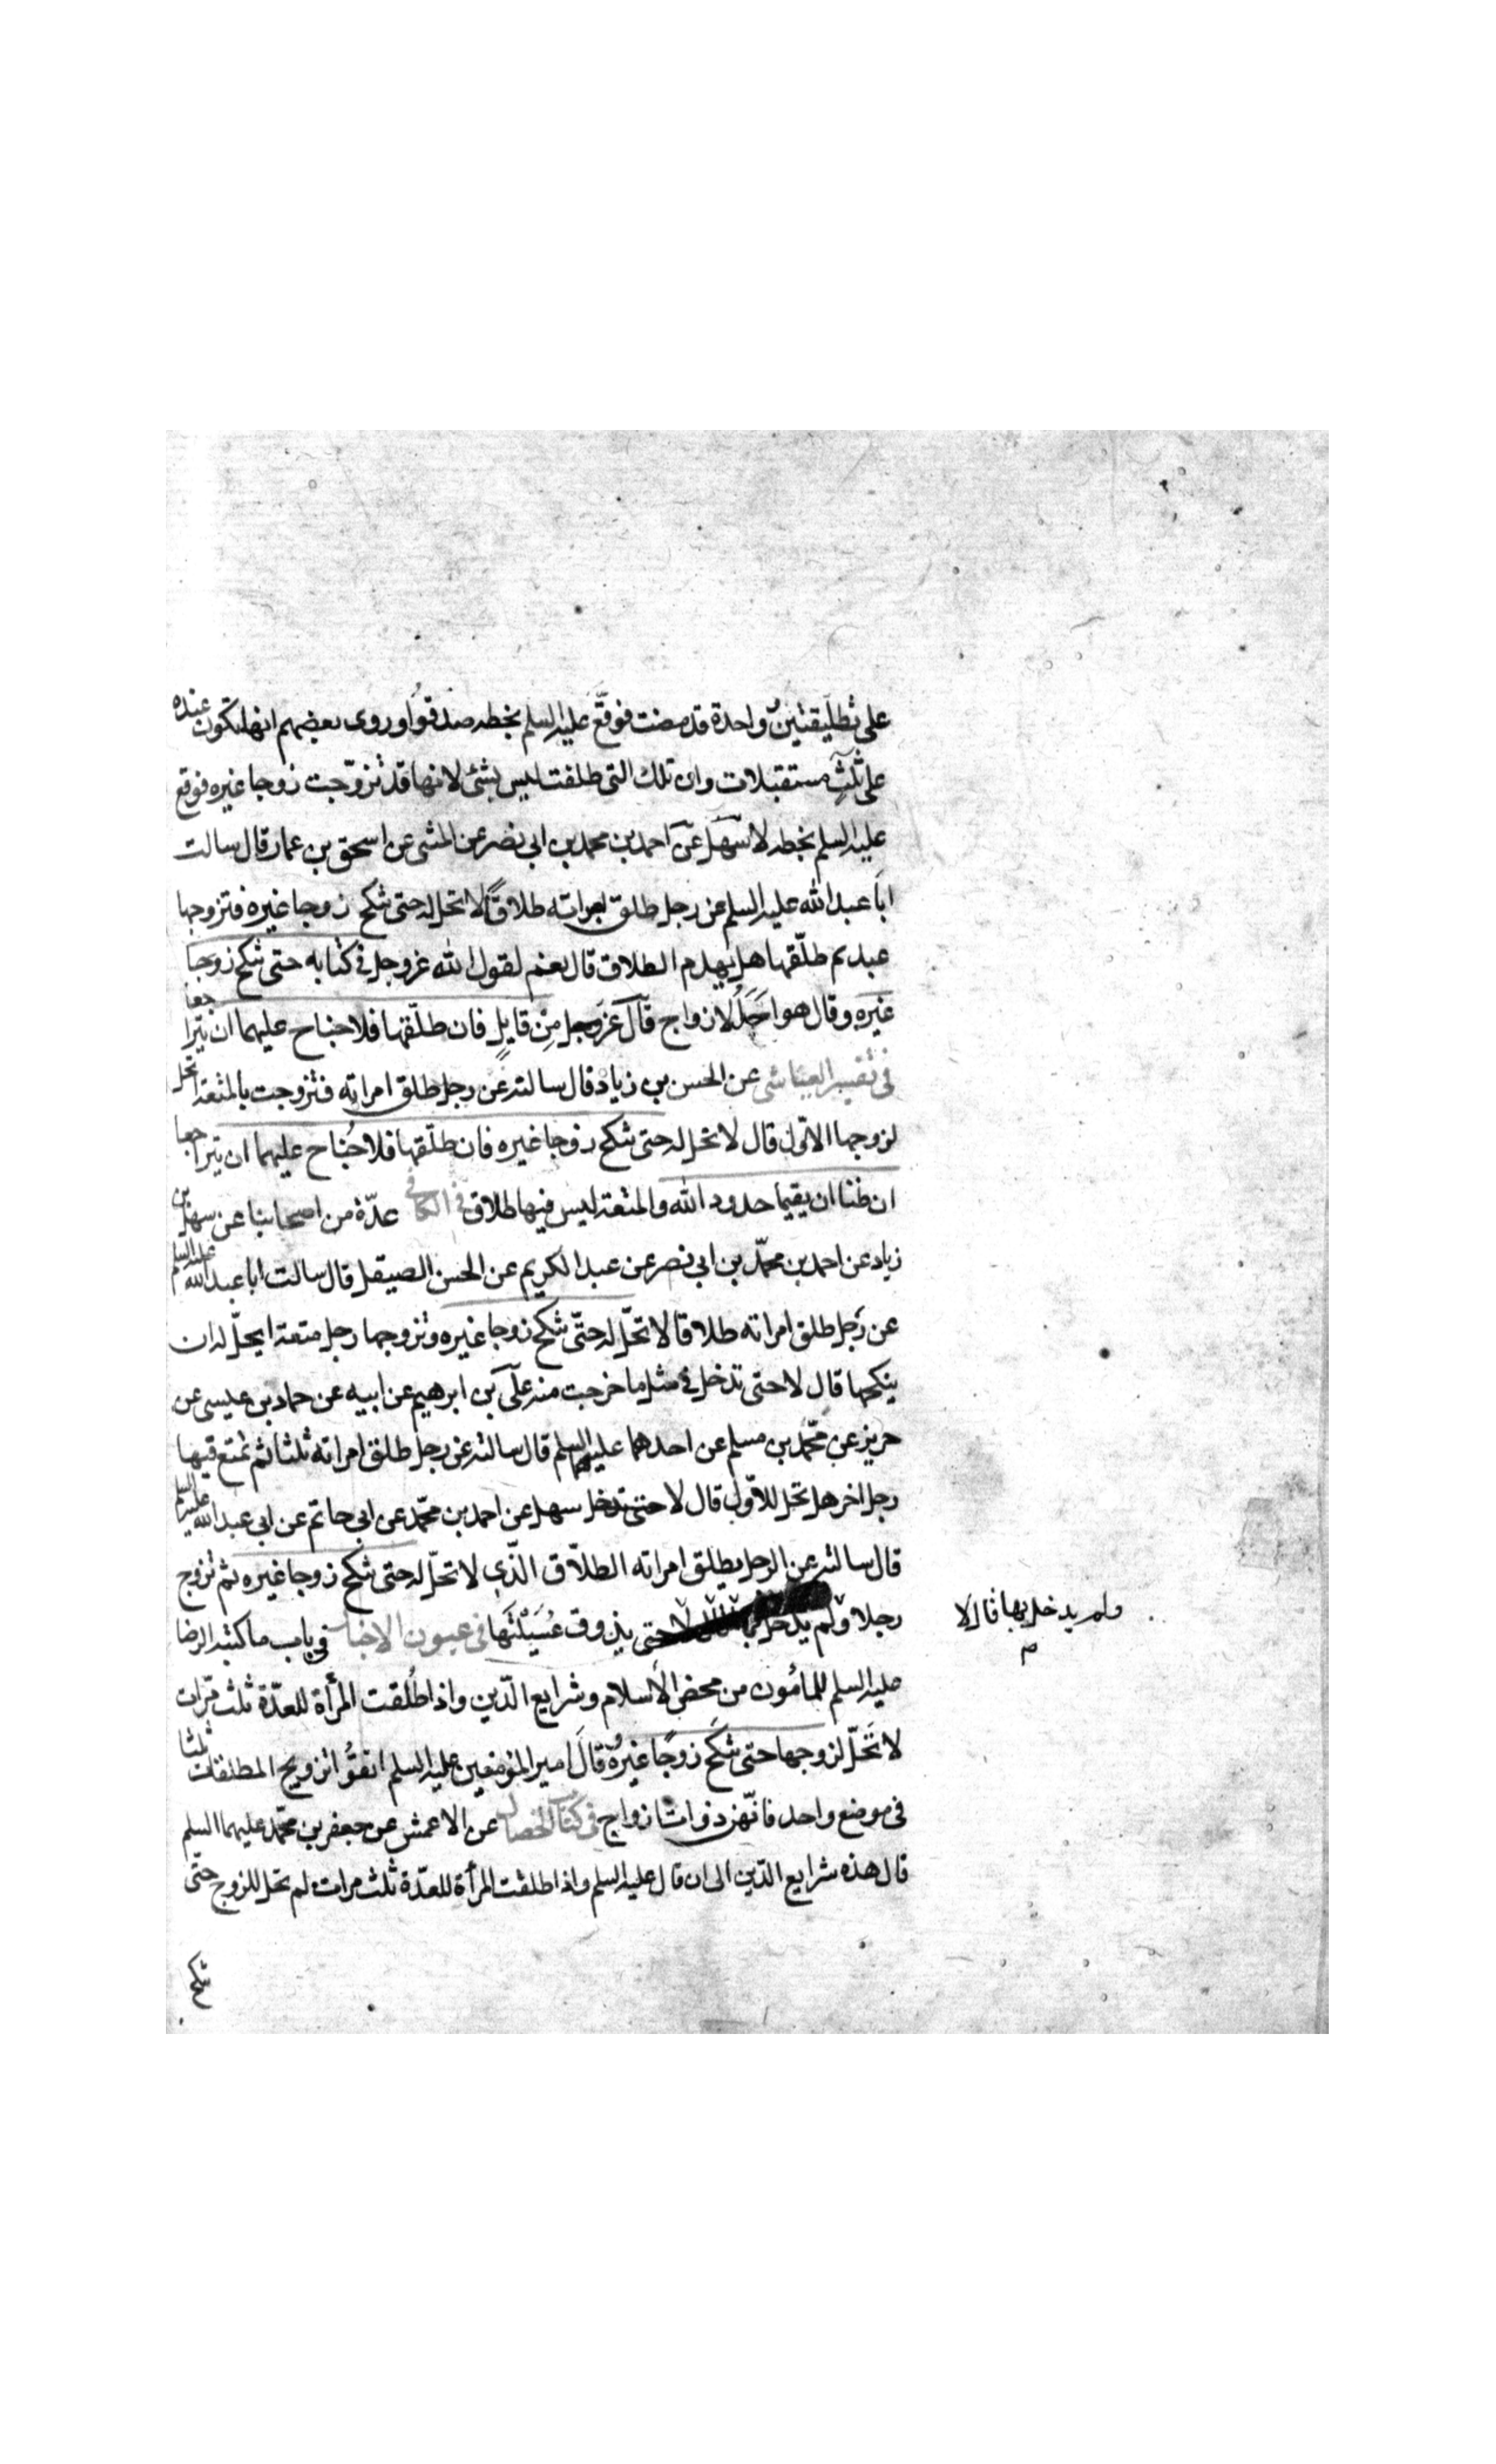 على تطليقتين وواحدة قد مضت فوقع عليه السلم بخطه صدقوا وروى بعضهم انها تكون عنده
على ثلث مستقبلات وان تلك التى طلقت ليس بشئ لانها قد تزوجت زوجا غيره فوقع
عليه السلم بخطه لا سهل عن احمد بن محمد بن ابى نصر عن المثنى عن اسحق بن عمار قال سالت
ابا عبد الله عليه السلم عن رجل طلق امراته طلاقا لا تحل له حتى تنكح زوجا غيره فتزوجها
عبد ثم طلقها هل يهدم الطلاق قال نعم لقول الله عز وجل فى كتابه حتى تنكح زوجا
غيره وقال هو احد الازواج قال عز وجل من قايل فان طلقها فلا جناح عليهما ان يتراجعا
فى تفسير العياشى عن الحسن بن زياد قال سالته عن رجل طلق امراته فتزوجت بالمتعة اتحل
لزوجها الاول قال لا تحل له حتى تنكح زوجا غيره فان طلقها فلا جناح عليهما ان يتراجعا
ان ظنا ان يقيما حدود الله والمتعة ليس فيها طلاق فى الكافى عدة من اصحابنا عن سهل بن
زياد عن احمد بن محمد بن ابى نصر عن عبد الكريم عن الحسن الصيقل قال سالت ابا عبد الله عليه السلم
عن رجل طلق امراته طلاقا لا تحل له حتى تنكح زوجا غيره وتزوجها رجل متعة ايحل له ان
ينكحها قال لا حتى تدخل فى مثل ما خرجت منه على بن ابرهيم عن ابيه عن حماد بن عيسى عن
حريز عن محمد بن مسلم عن احدهما عليهما السلم قال سالته عن رجل طلق امراته ثلثا ثم تمتع فيها
رجل اخر هل تحل للاول قال لا حتى تدخل سهل عن احمد بن محمد عن ابى حاتم عن ابى عبد الله عليه السلم
قال سالته عن الرجل يطلق امراته الطلاق الذى لا تحل له حتى تنكح زوجا غيره ثم تزوج
رجلا ولم يدخل بها حتى يذوق عسيلتها فى عيون الاخبار فى باب ما كتبه الرضا
ولم يدخل بها قال لا
م
عليه السلم للمامون من محض الاسلام وشرايع الدين واذا طلقت المرأة للعدة ثلث مرات
لا تحل لزوجها حتى تنكح زوجا غيره وقال امير المؤمنين عليه السلم اتقوا تزويج المطلقات ثلثا
فى موضع واحد فانهن ذوات ازواج فى كتاب الخصال عن الاعمش عن جعفر بن محمد عليهما السلم
قال هذه شرايع الدين الى ان قال عليه السلم واذا طلقت المرأة للعدة ثلث مرات لم تحل للزوج حتى
تنكح